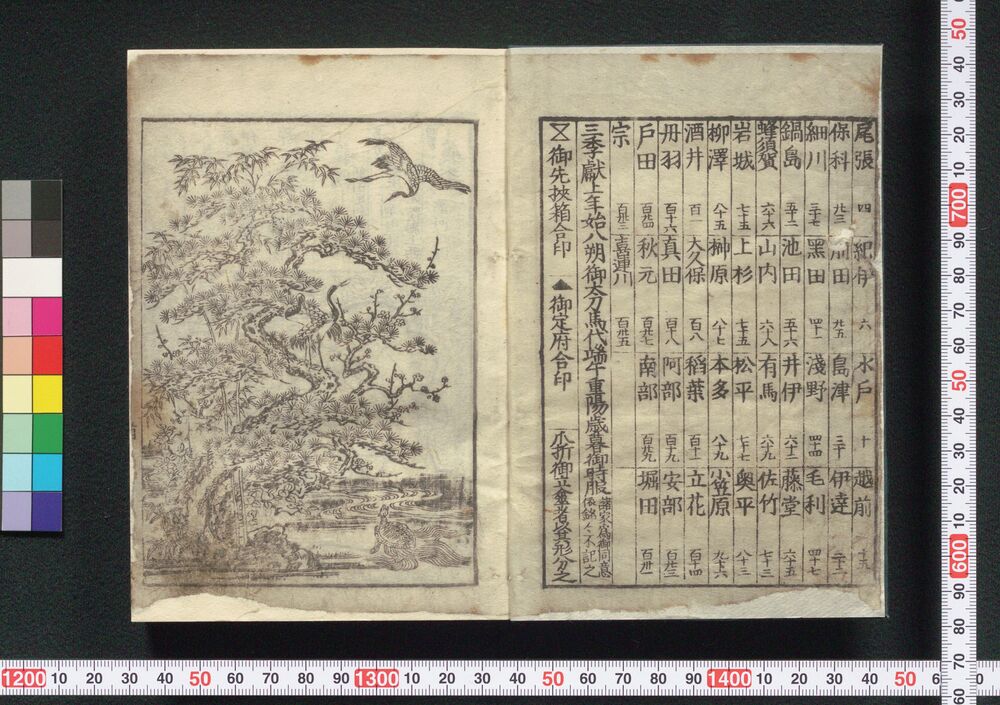 尾張 四 紀伊 六 水戸 十 越前 十九
保科 廿三 前田 廿五 島津 三十 伊達
細川 三十七 黒田 四十一 淺野 四十四 毛利 四十七
鍋島 五十二 池田 五十六 井伊 六十二 藤堂 六十五
蜂須賀 六十六 山内 六十八 有馬 六十九 佐竹 七十三
岩城 七十五 上杉 七十五 松平 七十七 奥平 八十三
柳澤 八十五 榊原 八十七 本多 八十九 小笠原 九十六
酒井 百一 大久保 百八 稻葉 百十一 立花 百十四
丹羽 百十六 真田 百十八 阿部 百十九 安部 百廿三
戸田 百廿四 秋元 百廿七 南部 百廿九 堀田 百卅一
宗 百卅三 喜連川 百卅五
三季獻上年始八朔御太刀馬代端午重陽歳暮御時服 諸家為御同意
依錦々不記之
御先挾箱合印 御定府合印 爪折御立傘者谷形分之
50 40 30 20 10 700 90 80 70 60 50 40 30 20 10 600 90 80 70 60
1200 10 20 30 40 50 60 70 80 90 1300 10 20 30 40 50 60 70 80 90 1400 10 20 30 40 50 60